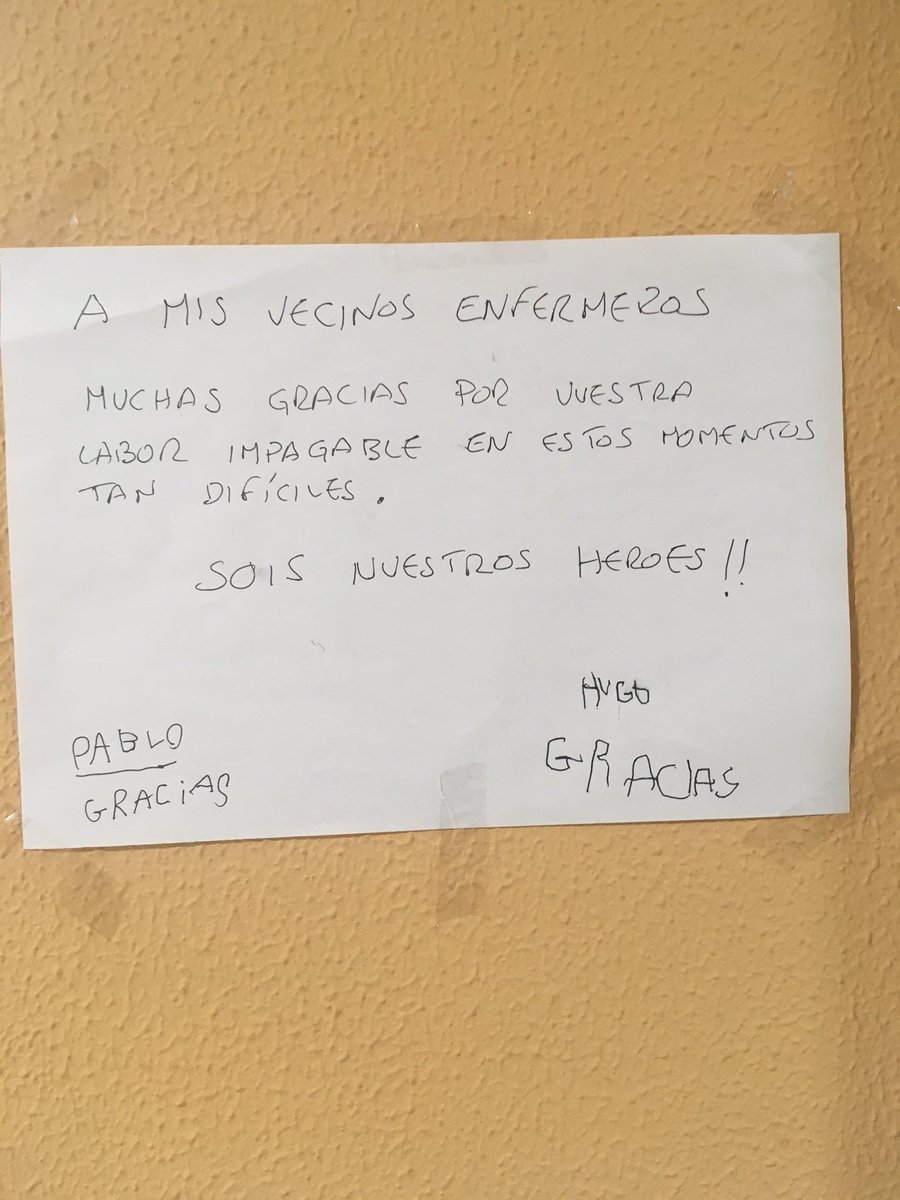 A MIS VECINOS ENFERMEROS
MUCHAS GRACIAS POR VUESTRA
LABOR IMPAGABLE EN ESTOS MOMENTOS
TAN DIFÍCILES.
SOIS NUESTROS HEROES!!
HUGO
GRACIAS
PABLO
GRACiAS